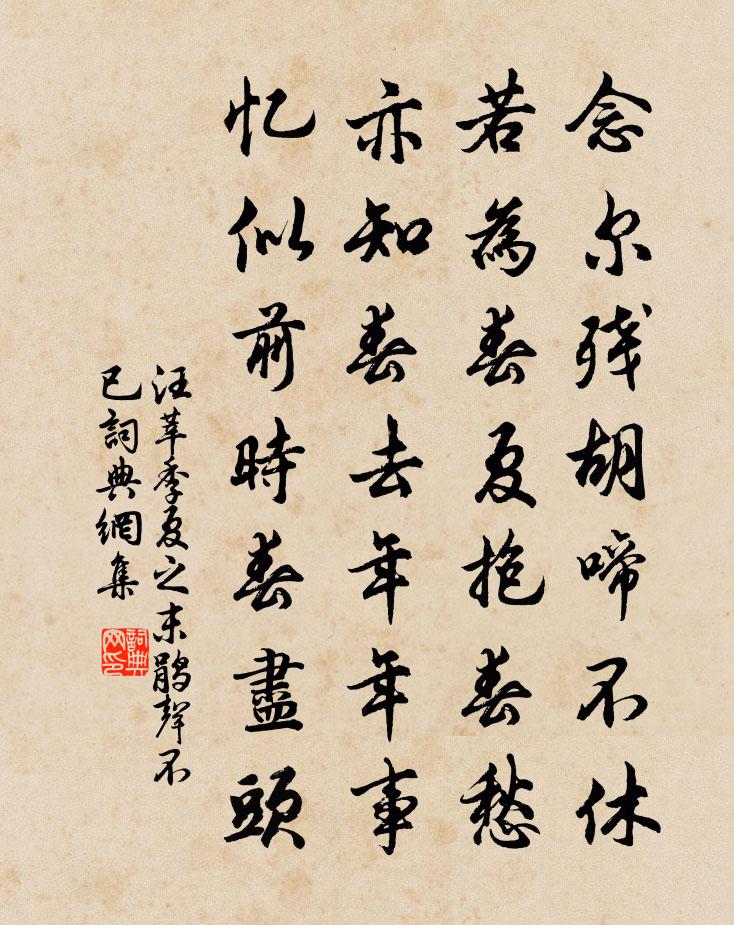 念尔残胡啼不休
若為春夏抱春愁
亦知春去年年事
忆似前時春盡頭
汪莘季夏之末鹃聲不
已詞典網集
詞典网印